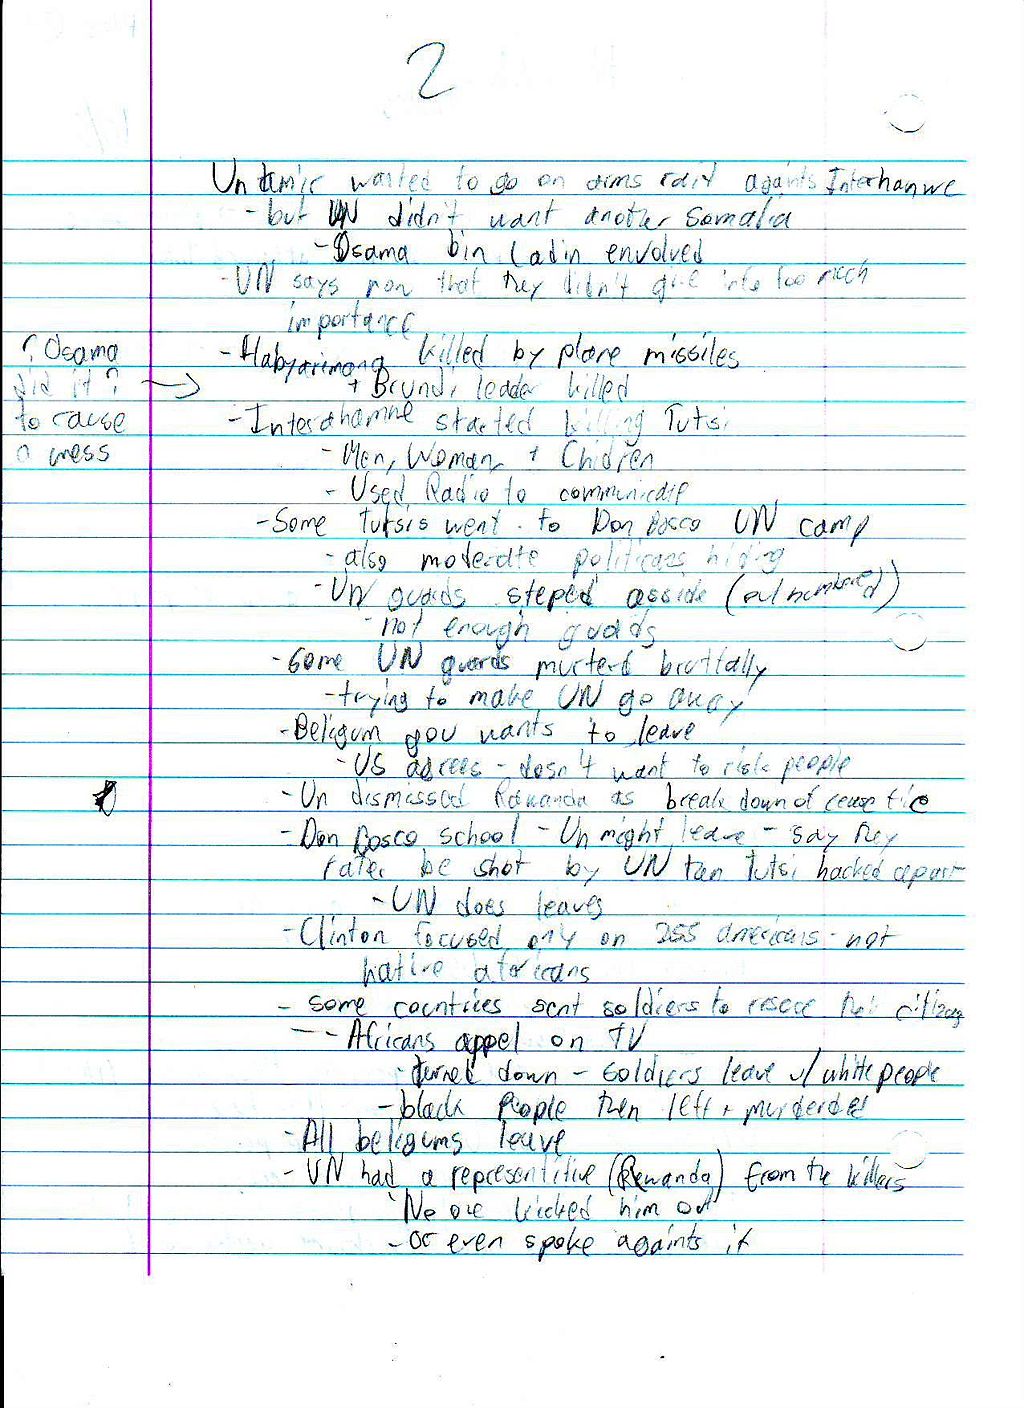 2
Un wanted to go on arms raid againts Interhamwe
- but UN didn't want another Somalia
- Osama bin Ladin envolved
- UN says now that they didn't give info too much
importance
- Habyarimana killed by plane missiles
? Osama
did it?
to cause
a mess
+ Brundi leader killed
- Interahamwe started killing Tutsi
- Men, Woman + Children
- Used Radio to communicate
- Some tutsis went to Don Bosco UN camp
- also moderate politicans hiding
- UN guards steped asside (outnumbered)
- not enough guads
- Some UN guards murterd bruttally
- trying to make UN go away
- Beligum gov wants to leave
- US agrees - dosn't want to risk people
- Un dismissed Rawanda as break down of cease fire
- Don Bosco school - Un might leave - say they
rater be shot by UN tan Tutsi hacked apart
- UN does leaves
- Clinton focused only on 255 americans - not
native africans
- some countries sent soldiers to rescue their
- Africans appel on TV
- turned down - soldiers leave w/ white people
- black people then left + murderded
- All beligums leave
- UN had a representitive (Rewanda) from the killers
- No one kicked him out
- or even spoke againts it